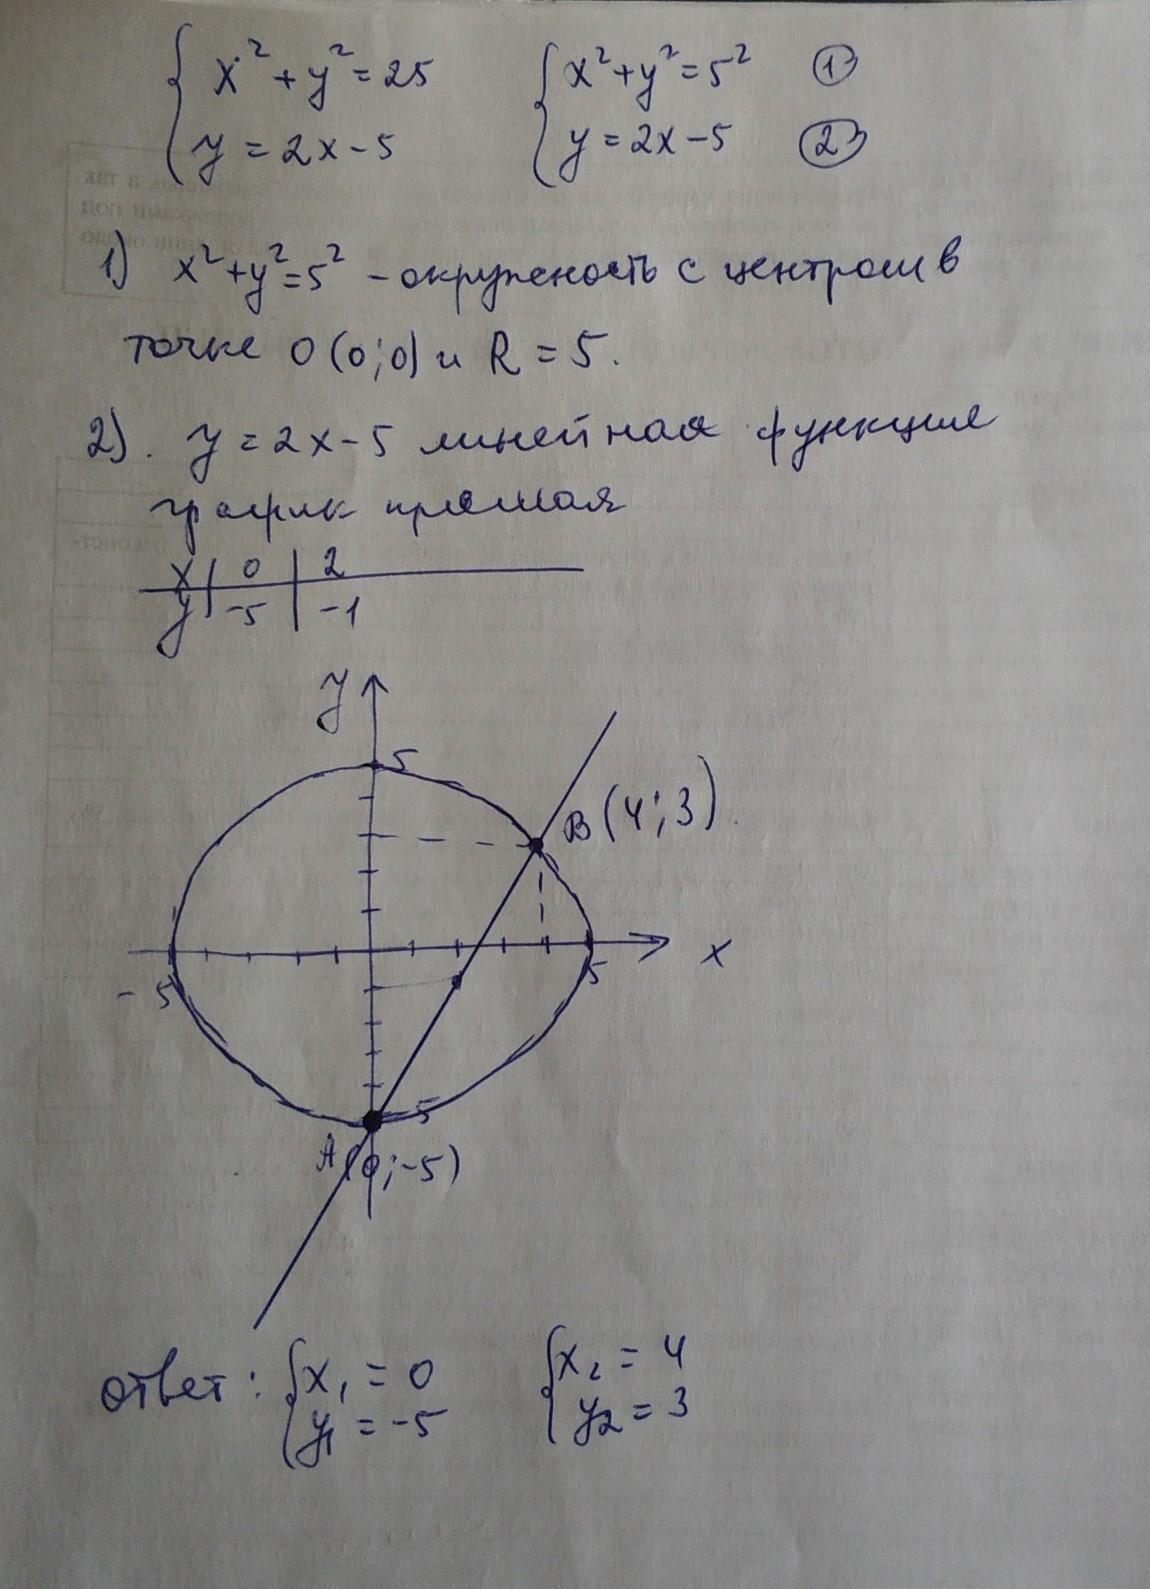 { x² + y² = 25 { x² + y² = 5² ①
y = 2x - 5 y = 2x - 5 ②
1) x² + y² = 5² - окружность с центром в
точке O (0; 0) и R = 5.
2). y = 2x - 5 линейная функция
график прямая
x | 0 | 2
y | -5 | -1
y
5
B (4; 3).
x
-5
5
-5
A (0; -5)
ответ: { x₁ = 0 { x₂ = 4
y₁ = -5 y₂ = 3